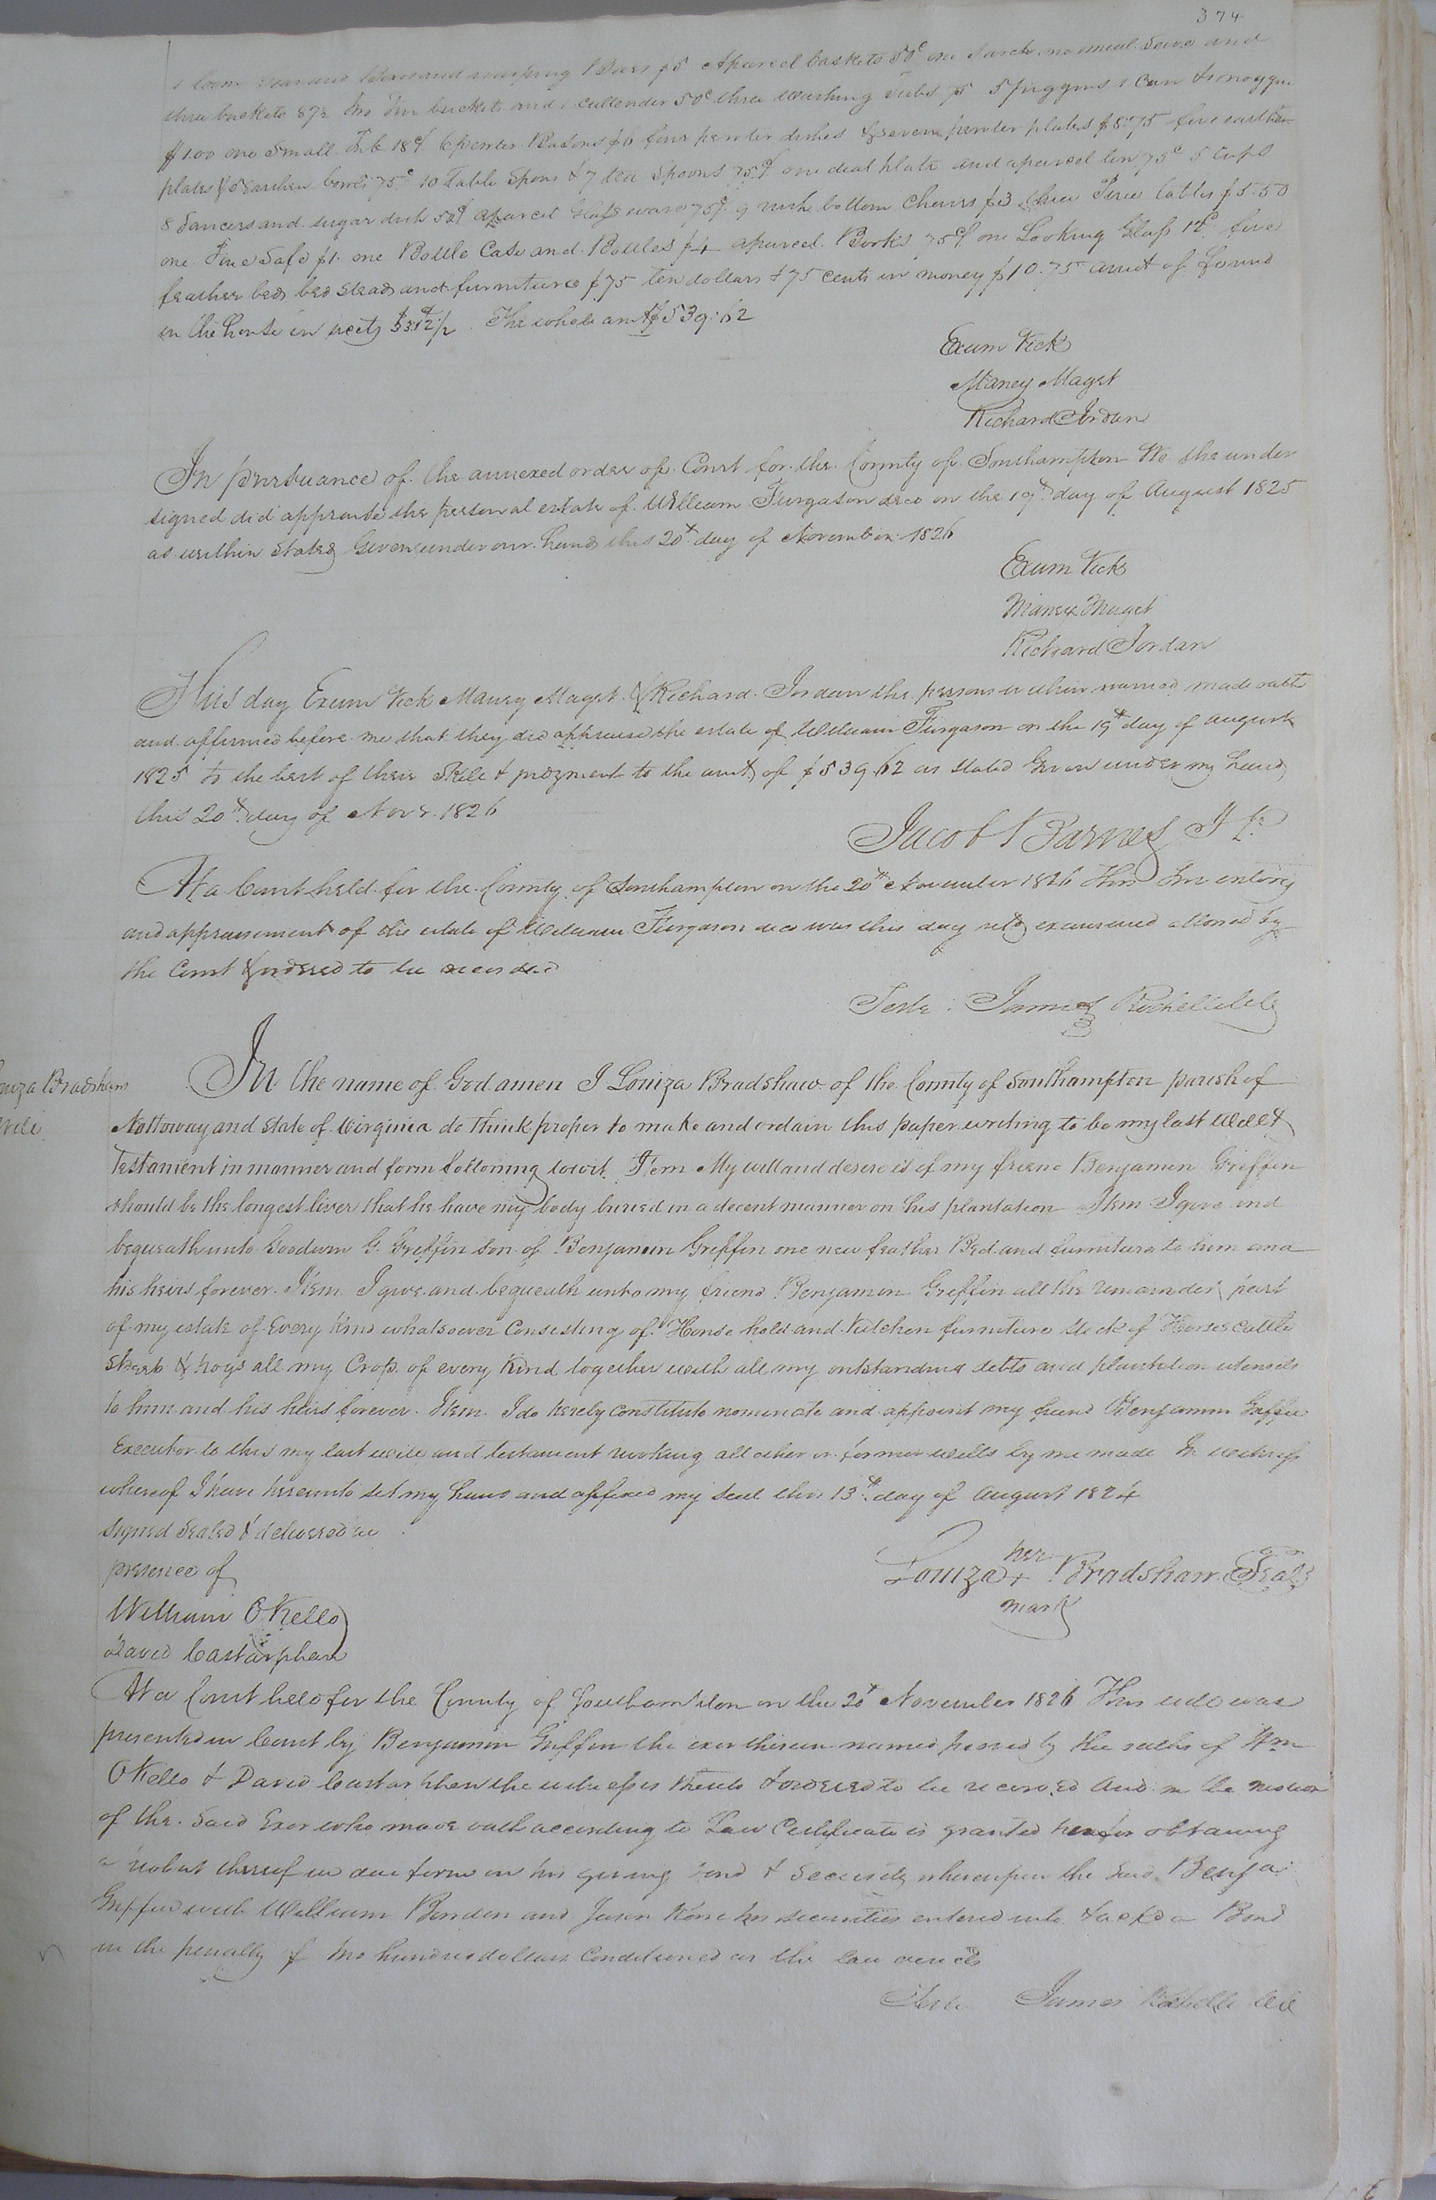 374
1 loom and warping Bars $5 A parcel baskets 50c one and
three buckets 87½ two Tin buckets and 1 cullender 50c three Washing Tubs $5 5 piggins 1 Can
$1.00 one Small Tub 18c 6 pewter Basons $6 four pewter dishes & seven pewter plates five earthen
plates & Earthen bowls 75c 10 Table Spoons & 7 tea Spoons 75c one deal plate and a parcel tin 75c 5 Cups
8 Saucers and sugar dish 50c a parcel Glass ware 75c 9 rush bottom Chairs $3 three Pine tables $5.50
one Pine Safe $1 one Bottle Case and Bottles $4 a parcel Books 75c one Looking Glass five
feather beds bed steads and furniture $75 ten dollars & 75 cents in money $10.75 amt of found
in the house in The whole amt $539.62
Exum Vick
Maney Maget
Richard Jordan
In pursuance of the annexed order of Court for the County of Southampton We the under
signed did appraise the personal estate of William Furgason decd on the 19th day of August 1825
as within stated Given under our hands this 20th day of November 1826
Exum Vick
Maney Maget
Richard Jordan
This day Exum Vick Maney Maget & Richard Jordan the persons within named made oath
and affirmed before me that they did appraise the estate of William Furgason on the 19th day of August
1825 to the best of their Skill & judgment to the amt of $539.62 as stated Given under my hand
this 20th day of Novr. 1826
Jacob Barnes J P.
At a Court held for the County of Southampton on the 20th November 1826 This Inventory
and appraisement of the estate of William Furgason decd was this day retd examined allowed by
the Court & ordered to be recorded
Teste James Rochelle Clk
ouiza Bradshaws
Will
In the name of God amen I Louiza Bradshaw of the County of Southampton parish of
Nottoway and State of Virginia do think proper to make and ordain this paper writing to be my last Will &
Testament in manner and form following towit. Item My will and desire is if my friend Benjamin Griffin
should be the longest liver that he have my body buried in a decent manner on his plantation Item I give and
bequeath unto Goodwin G. Griffin son of Benjamin Griffin one new feather Bed and furniture to him and
his heirs forever. Item I give and bequeath unto my friend Benjamin Griffin all the remainder part
of my estate of Every kind whatsoever Consisting of House hold and Kitchen furniture Stock of Horses Cattle
sheep & hogs all my Crop of every kind together with all my outstanding debts and plantation utensils
to him and his heirs forever. Item I do hereby constitute nominate and appoint my friend Benjamin Griffin
Executor to this my last will and testament revoking all other or former wills by me made In witness
whereof I have hereunto set my hand and affixed my seal this 13th day of August 1824
signed Sealed & delivered in
presence of
her
Louiza + Bradshaw Seal
mark
William O Kello
David Castarphen
At a Court held for the County of Southampton on the 20th November 1826 This will was
presented in Court by Benjamin Griffin the exor therein named proved by the oaths of Wm
O Kello & David Castarphen the witnesses thereto & ordered to be recorded And on the motion
of the Said Exor who made oath according to Law Certificate is granted him for obtaining
a probat thereof in due form on his giving bond & Security whereupon the said Benja
Griffin with William Bowden and his securities entered into & ackd a Bond
in the penalty of two hundred dollars Conditioned as the law directs
Teste James Rochelle Clk